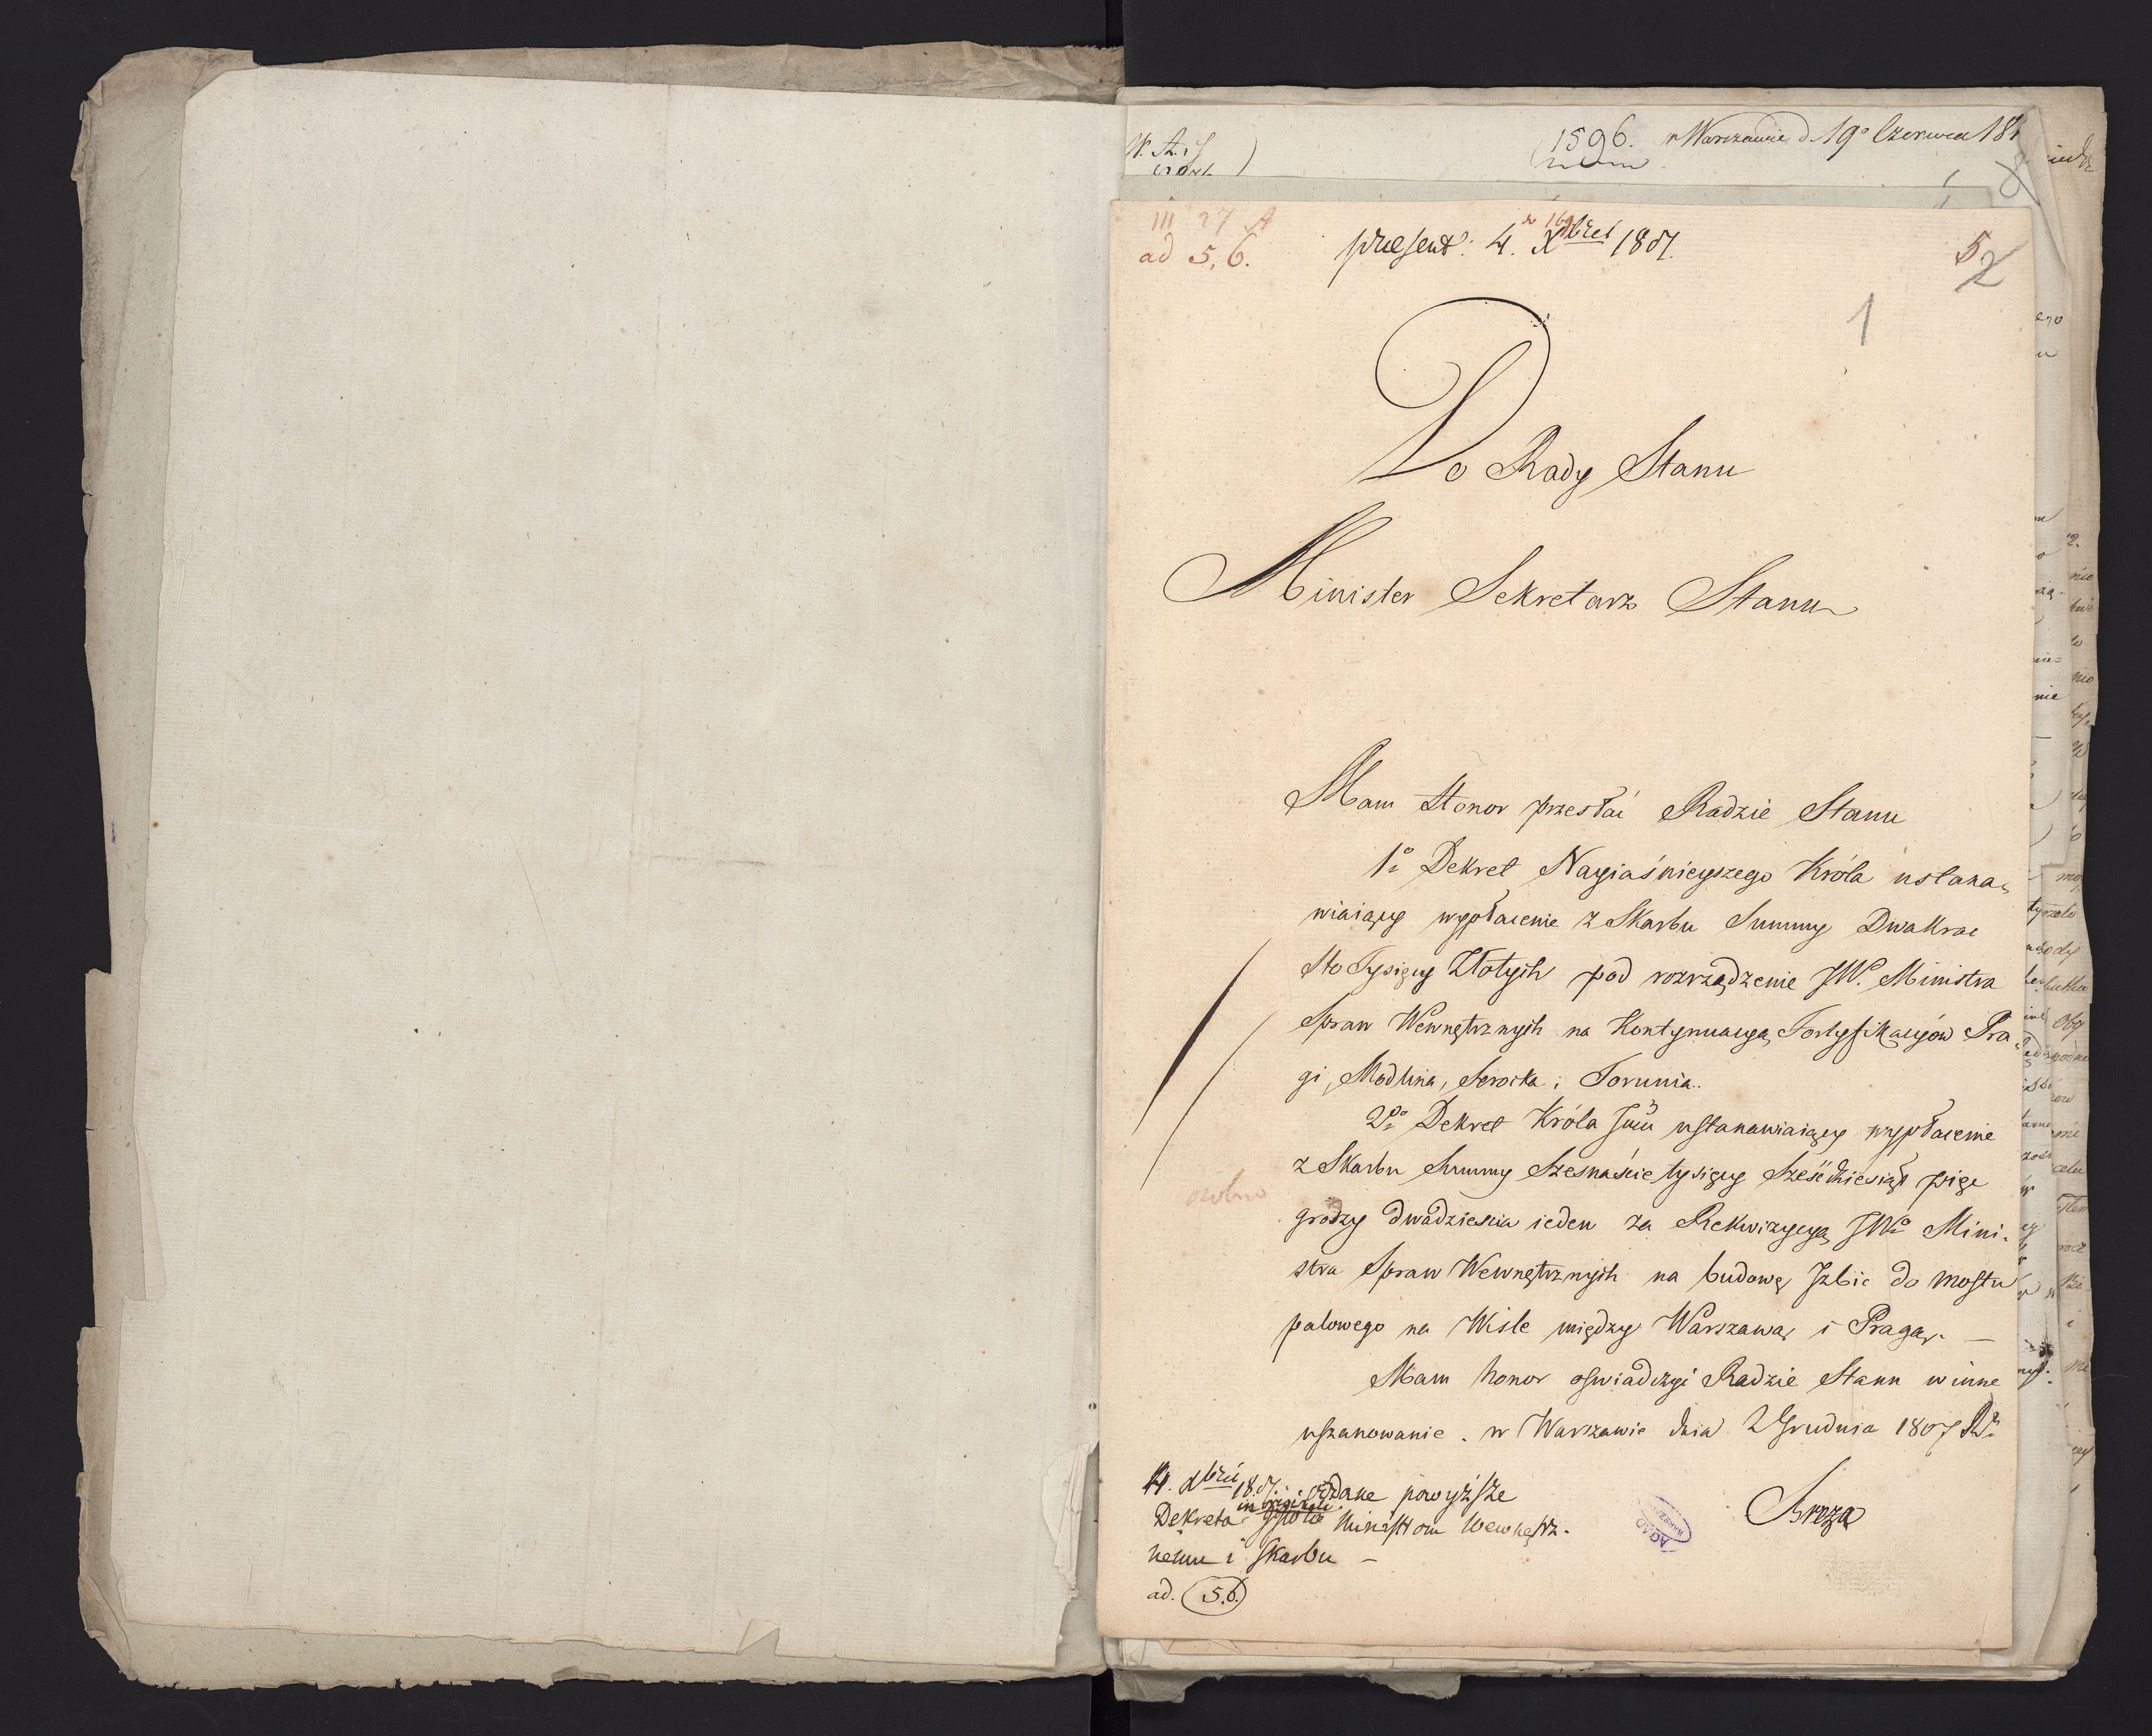 1596. w Warszawie d. 19° Czerwca 18
III 27 A
ad 5, 6.
praesent: 4. Xbris 1807.
5
2
1
Do Rady Stanu
Minister Sekretarz Stanu
Mam Honor przesłać Radzie Stanu
1° Dekret Nayiaśnieyszego Króla ustana,
wiaiący wypłacenie z Skarbu Summy Dwakroć
Sto Tysięcy Złotych pod rozrządzenie JW. Ministra
Spraw Wewnętrznych na Kontynuacyą Fortyfikacyów Pra,
gi, Modlina, Serocka i Torunia.
2do Dekret Króla Jmći ustanawiaiący wypłacenie
z Skarbu Summy Szesnaście tysięcy Sześćdziesiąt pięć
groszy dwadzieścia ieden za Rekwizycyą JWo Mini,
stra Spraw Wewnętrznych na budowę Izbic do mostu
palowego na Wiśle między Warszawą i Pragą. —
Mam honor oświadczyć Radzie Stanu winne
uszanowanie. w Warszawie dnia 2 Grudnia 1807 Ro
Breza
4. Xbris 1807. oddane powyższe
Dekreta in originali Ministrom Wewnętrz-
nemu i Skarbu —
ad. 5.6.
AGAD